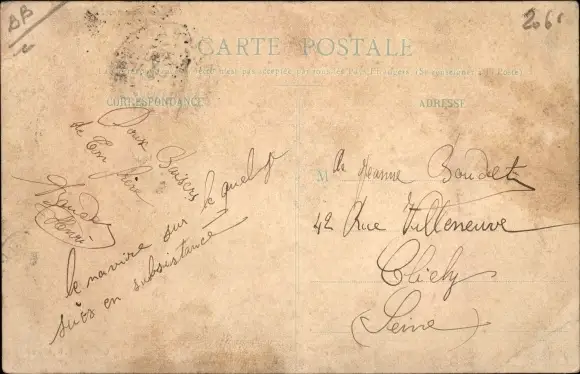 BB
206
CARTE POSTALE
CORRESPONDANCE
ADRESSE
Doux Baisers
de Ton frère
(Henri)
le navire sur le quel je
suis en subsistance
M elle Jeanne Boudet
42 Rue Villeneuve
Clichy
(Seine)